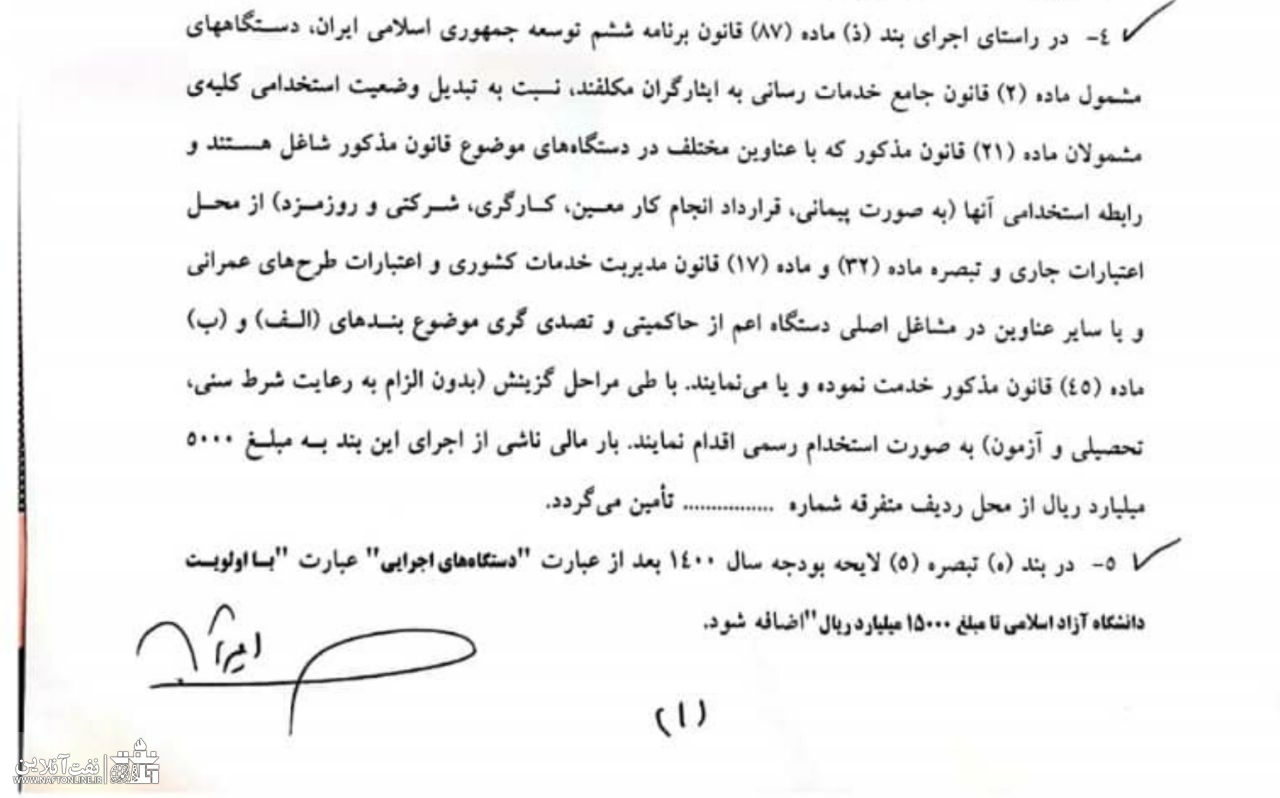 ۴- در راستای اجرای بند (ذ) ماده (۸۷) قانون برنامه ششم توسعه جمهوری اسلامی ایران، دستگاههای
مشمول ماده (۲) قانون جامع خدمات رسانی به ایثارگران مکلفند، نسبت به تبدیل وضعیت استخدامی کلیه‌ی
مشمولان ماده (۲۱) قانون مذکور که با عناوین مختلف در دستگاه‌های موضوع قانون مذکور شاغل هستند و
رابطه استخدامی آنها (به صورت پیمانی، قرارداد انجام کار معین، کارگری، شرکتی و روزمزد) از محل
اعتبارات جاری و تبصره ماده (۳۲) و ماده (۱۷) قانون مدیریت خدمات کشوری و اعتبارات طرح‌های عمرانی
و یا سایر عناوین در مشاغل اصلی دستگاه اعم از حاکمیتی و تصدی گری موضوع بندهای (الف) و (ب)
ماده (۴۵) قانون مذکور خدمت نموده و یا می‌نمایند. با طی مراحل گزینش (بدون الزام به رعایت شرط سنی،
تحصیلی و آزمون) به صورت استخدام رسمی اقدام نمایند. بار مالی ناشی از اجرای این بند به مبلغ ۵۰۰۰
میلیارد ریال از محل ردیف متفرقه شماره ................ تأمین می‌گردد.
۵- در بند (ه) تبصره (۵) لایحه بودجه سال ۱۴۰۰ بعد از عبارت "دستگاه‌های اجرایی" عبارت "با اولویت
دانشگاه آزاد اسلامی تا مبلغ ۱۵۰۰۰ میلیارد ریال" اضافه شود.
(۱)
نفت‌آنلاین
WWW.NAFTONLINE.IR